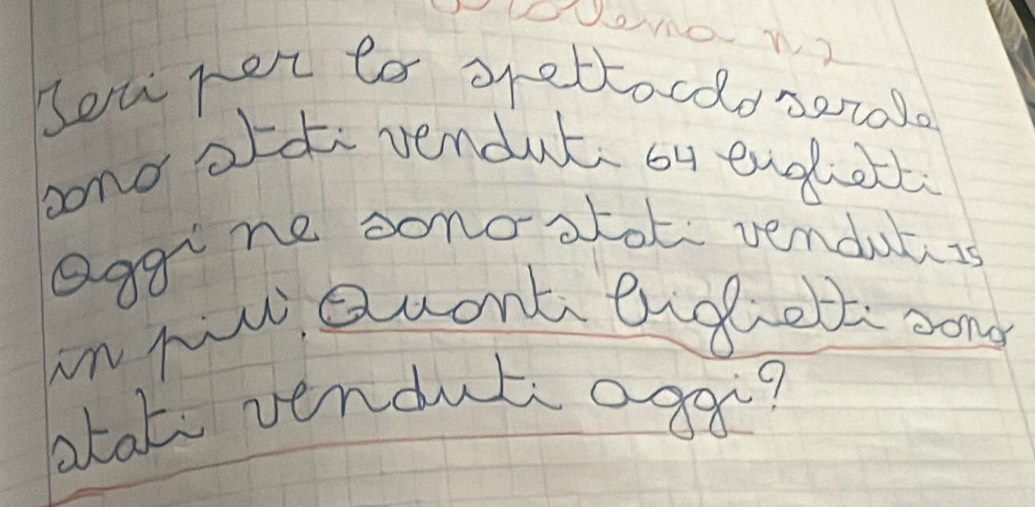 Problema n.2
Ieri per lo spettacolo serale
sono stati venduti 64 biglietti
Oggi ne sono stati venduti 15
in più. Quanti biglietti sono
stati venduti oggi?